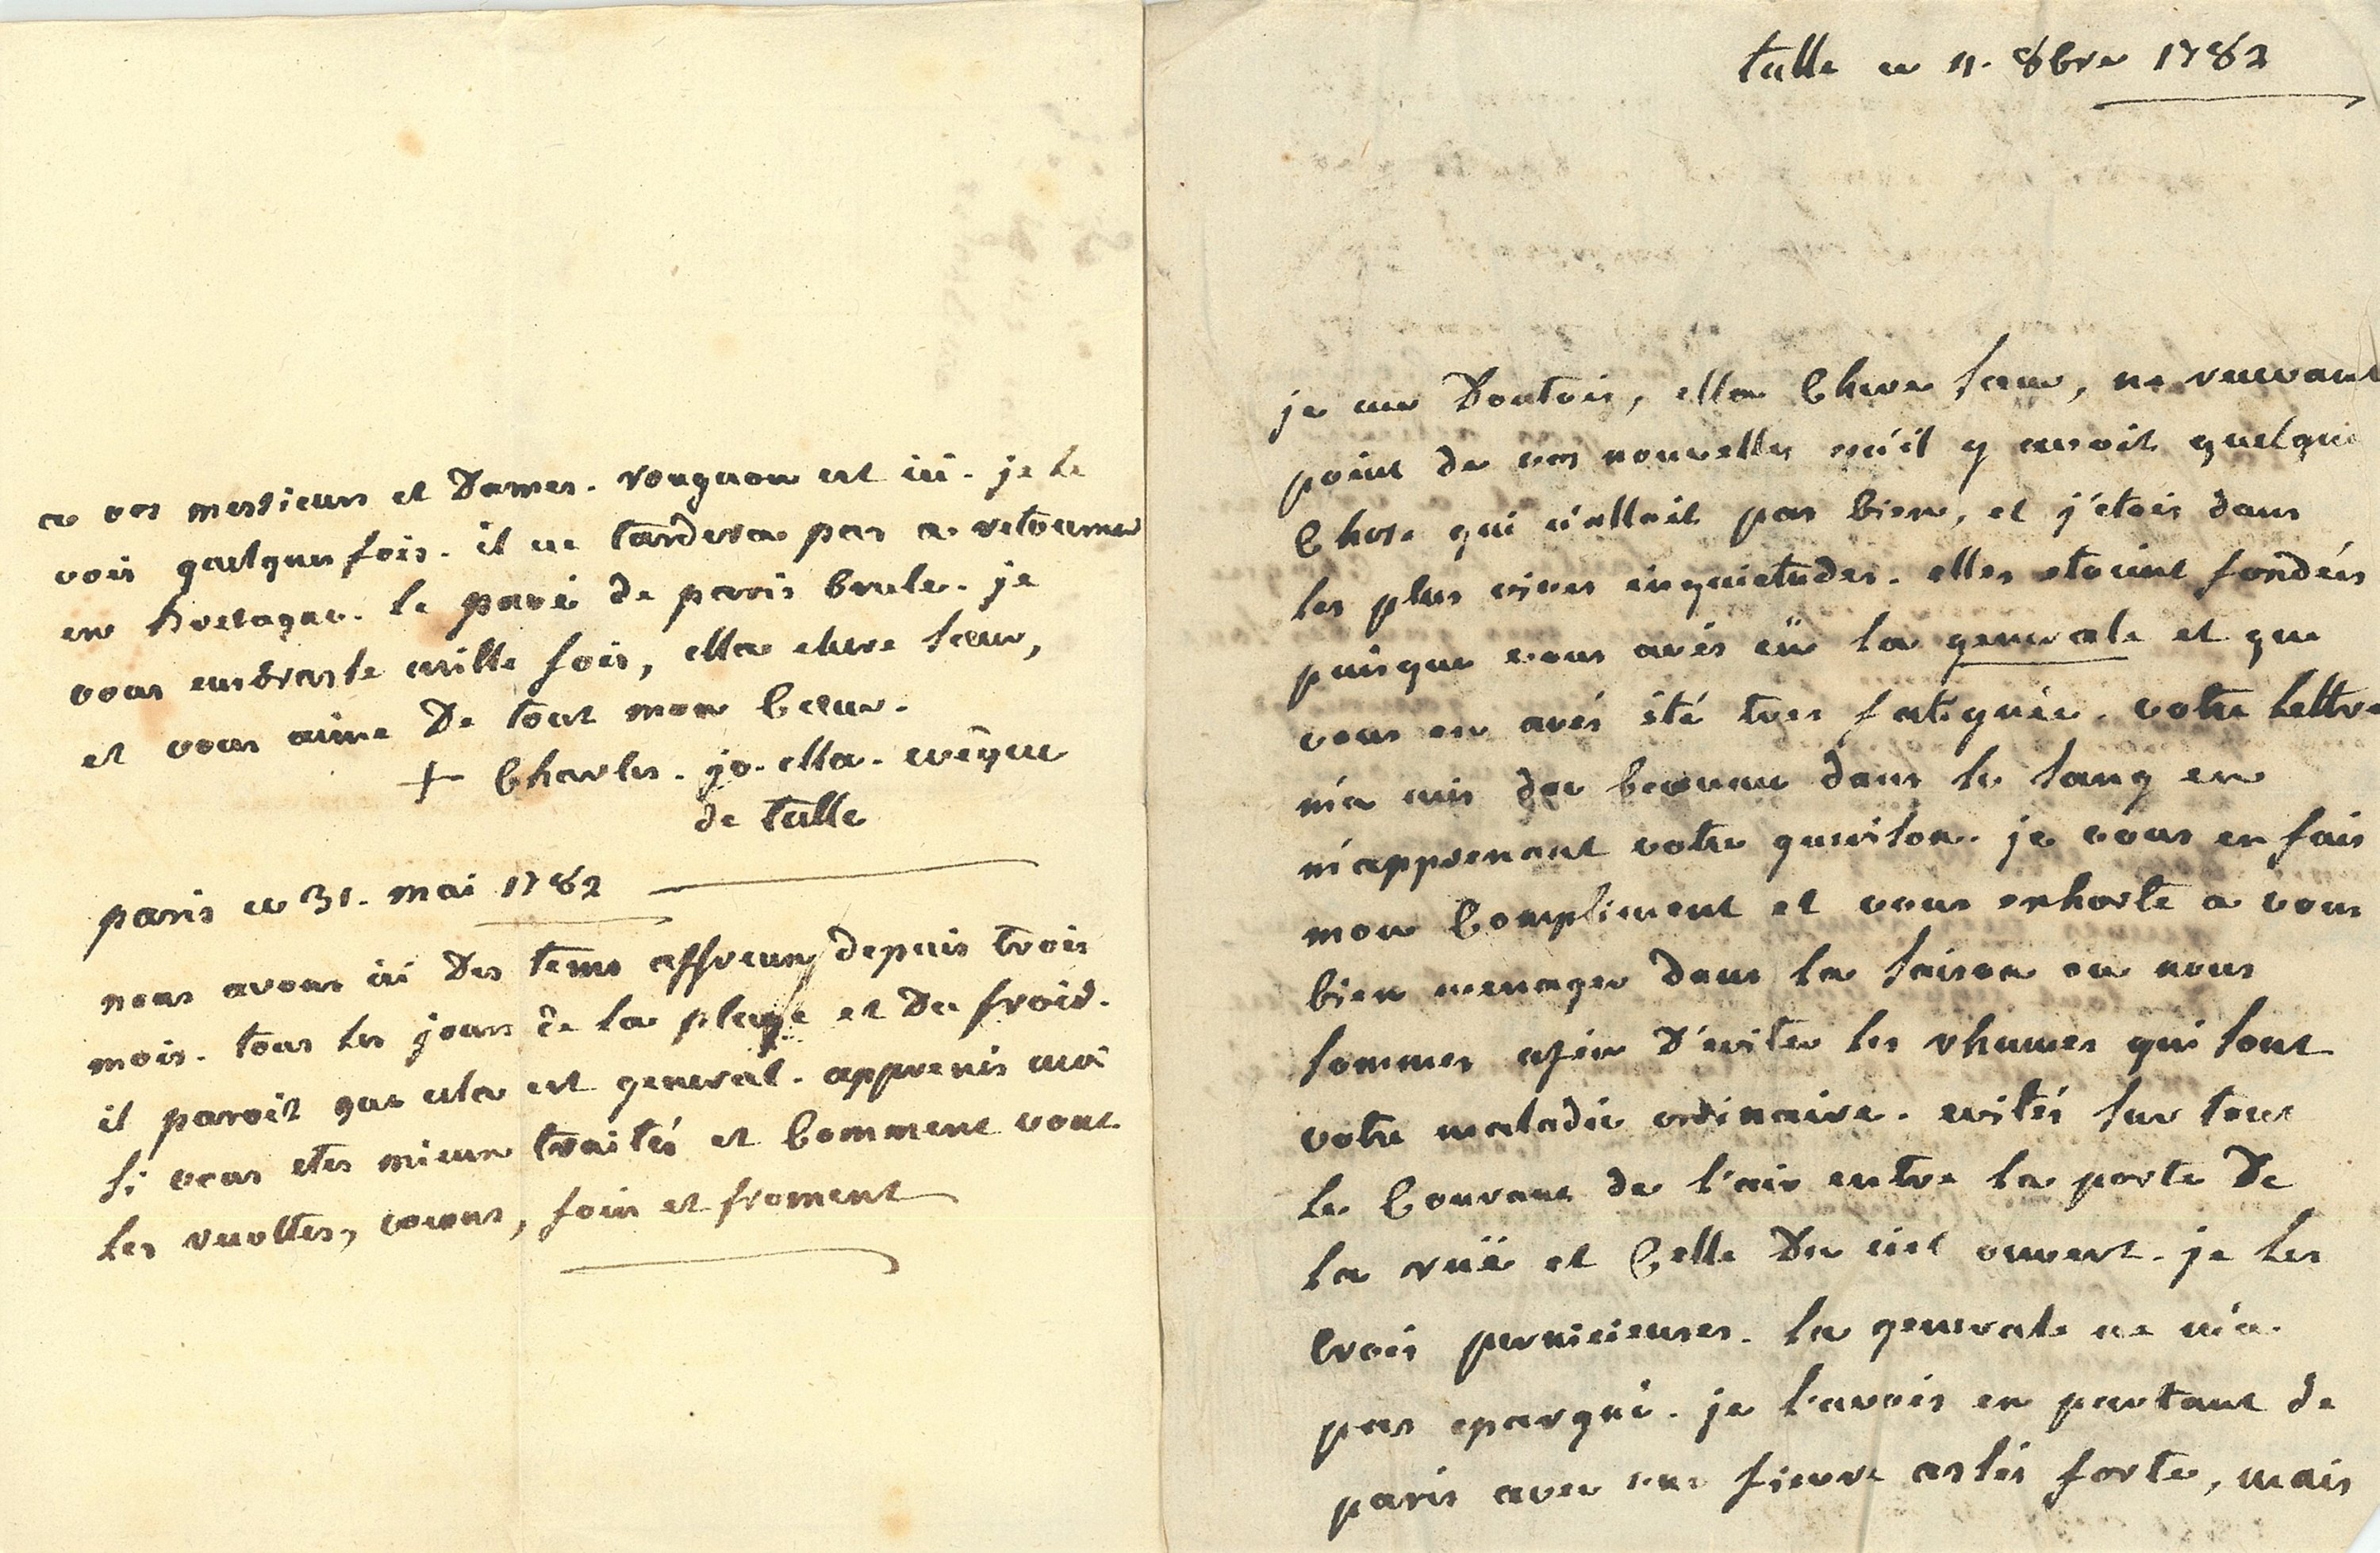 a vos messieurs et Dames. rougnon est ici. je le
vois quelques fois. il ne tardera pas a retourner
en bretagne. le pavé de paris brule. je
vous embrasse mille fois, Ma chere sœur,
et vous aime De tout mon Cœur.
+ Charles. jo. Ma. evêque
de tulle
paris ce 31. mai 1782
nous avons ici Des tems affreux depuis trois
mois. tous les jours de la pluye et Du froid.
il paroit que cela est general. apprenés moi
si vous etes mieux traités et Comment vont
les recoltes, foin et froment
tulle ce 11. 8bre 1782
je me Doutois, Ma Chere sœur, ne recevant
point de vos nouvelles qu'il y avoit quelque
Chose qui n'alloit pas bien, et j'étois dans
les plus vives inquietudes. elles etoient fondées
puisque vous avés eü la generale et que
vous en avés été tres fatiguée. votre lettre
m'a mis du beaume dans le sang en
m'apprenant votre guerison. je vous en fais
mon Compliment et vous exhorte a vous
bien menager dans la saison ou nous
sommes afin D'eviter les rhumes qui sont
votre maladie ordinaire. evités sur tout
le Courant de l'air entre la porte De
la ruë et Celle Du ciel ouvert. je les
Crois pernicieuses. la generale ne m'a
pas epargné. je l'avois en partant de
paris avec une fievre assés forte, mais